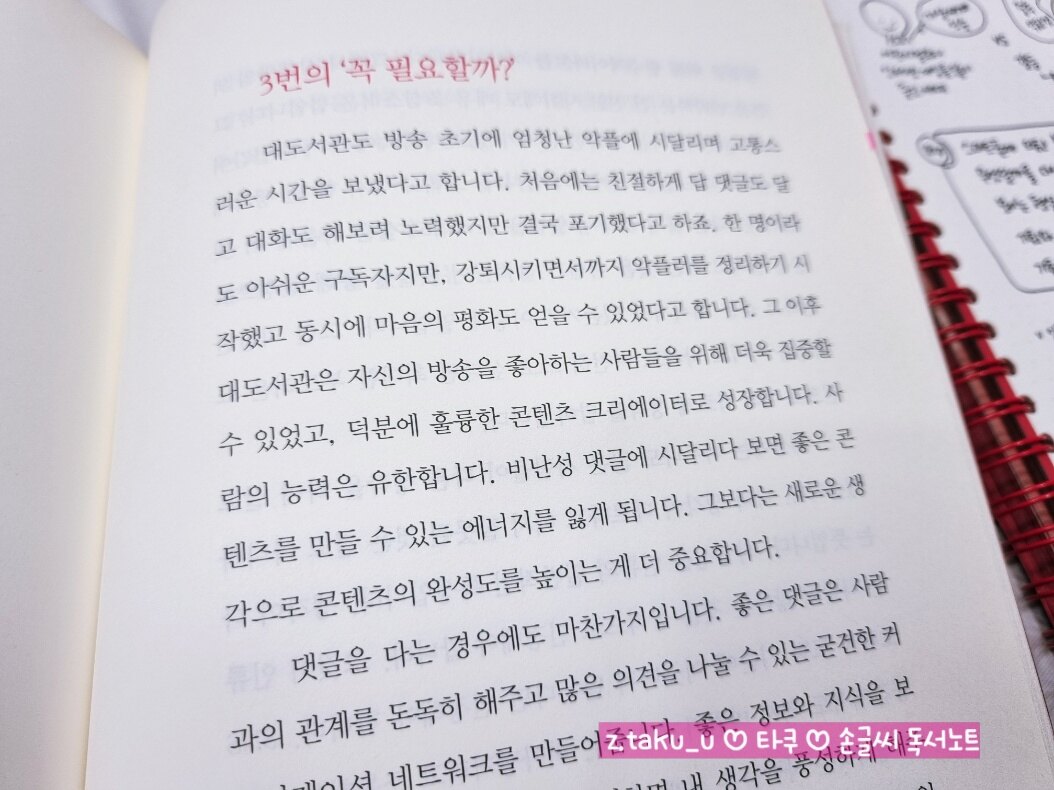 3번의 '꼭 필요할까?'
대도서관도 방송 초기에 엄청난 악플에 시달리며 고통스
러운 시간을 보냈다고 합니다. 처음에는 친절하게 답 댓글도 달
고 대화도 해보려 노력했지만 결국 포기했다고 하죠. 한 명이라
도 아쉬운 구독자지만, 강퇴시키면서까지 악플러를 정리하기 시
작했고 동시에 마음의 평화도 얻을 수 있었다고 합니다. 그 이후
대도서관은 자신의 방송을 좋아하는 사람들을 위해 더욱 집중할
수 있었고, 덕분에 훌륭한 콘텐츠 크리에이터로 성장합니다. 사
람의 능력은 유한합니다. 비난성 댓글에 시달리다 보면 좋은 콘
텐츠를 만들 수 있는 에너지를 잃게 됩니다. 그보다는 새로운 생
각으로 콘텐츠의 완성도를 높이는 게 더 중요합니다.
댓글을 다는 경우에도 마찬가지입니다. 좋은 댓글은 사람
과의 관계를 돈독히 해주고 많은 의견을 나눌 수 있는 굳건한 커
네트워크를 만들어줍니다. 좋은 정보와 지식을 보
내 생각을 풍성하게
z.taku_u ♡ 타쿠 ♡ 손글씨 독서노트